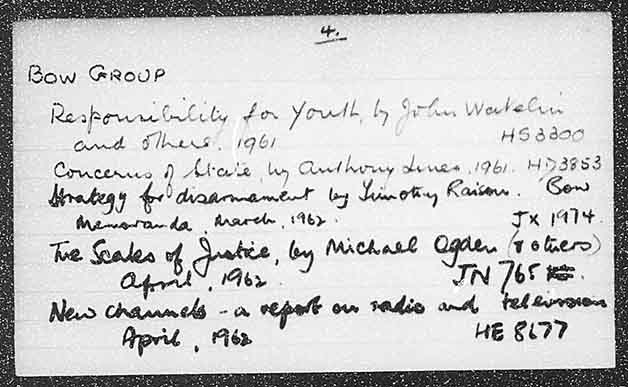 4.
BOW GROUP
Responsibility for Youth, by John Wakelin
and others. 1961 HS3300
Concerns of State, by Anthony Lines, 1961. HD3853
Strategy for disarmament by Timothy Raison. Bow
Memoranda, March, 1962. JX 1974.
The Scales of Justice, by Michael Ogden (& others)
April, 1962. JN 765
New channels - a report on radio and television
April, 1962 HE 8677